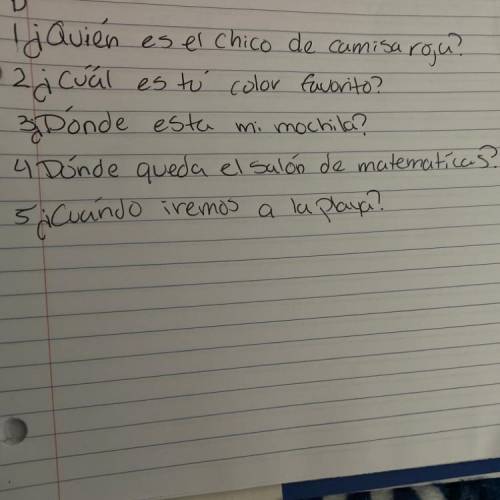 1 ¿Quién es el chico de camisa roja?
2 ¿Cuál es tú color favorito?
3 ¿Dónde esta mi mochila?
4 Dónde queda el salón de matematícas?
5 ¿Cuándo iremos a la playa?